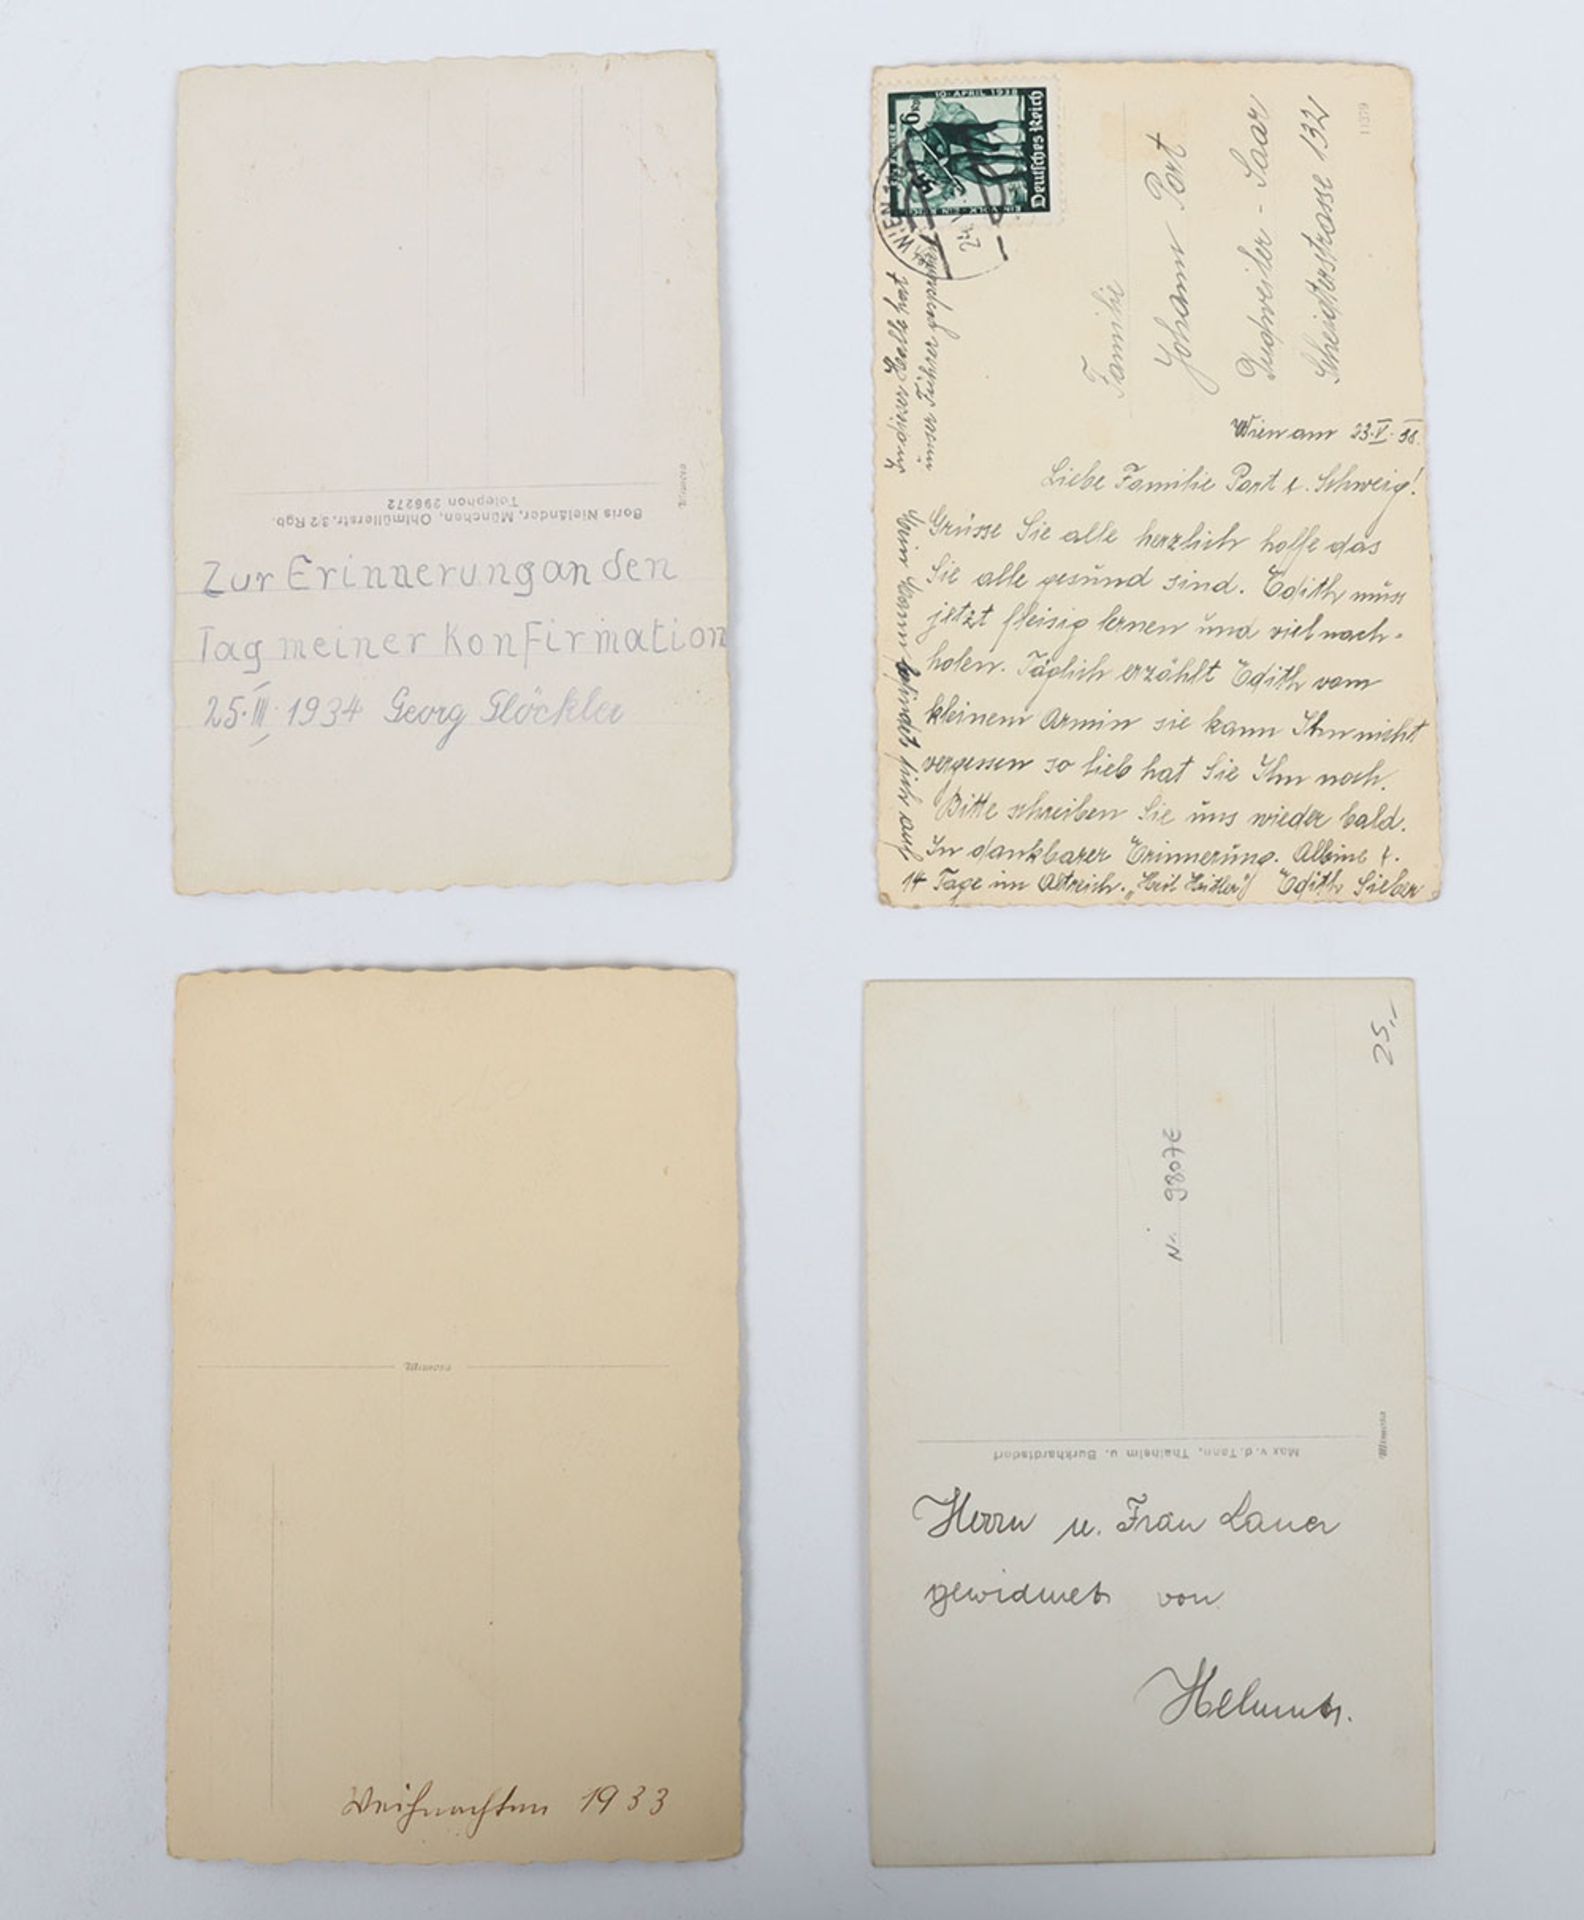 Boris Nieländer, München, Ohlmüllerstr. 3/2 Rgb.
Telephon 296272
Mimosa
Zur Erinnerung an den
Tag meiner Konfirmation
25. III. 1934 Georg Glöckler
10. APRIL 1938
Deutsches Reich
EIN VOLK · EIN REICH
EIN FÜHRER
WIEN
11379
Familie
Johann Port
Dudweiler - Saar
Scheidterstrasse 132
Wien am 23.V.38.
Liebe Familie Port u. Schweig!
Grüsse Sie alle herzlich hoffe das
Sie alle gesund sind. Edith muss
jetzt fleisig lernen und viel nach-
holen. Täglich erzählt Edith vom
kleinem Armin sie kann Ihm nicht
vergessen so lieb hat Sie Ihm noch.
Bitte schreiben Sie uns wieder bald.
In dankbarer Erinnerung. Albine u.
Edith Sieber
Mein Mann befindet sich auf
14 Tage im Altreich. „Heil Hitler"
unser Führer
Mimosa
Weihnachten 1933
25,-
Nr. 9807E
Max v. d. Tann, Thalheim u. Burkhardtsdorf
Mimosa
Herrn u. Frau Lauer
gewidmet von
Helmut.